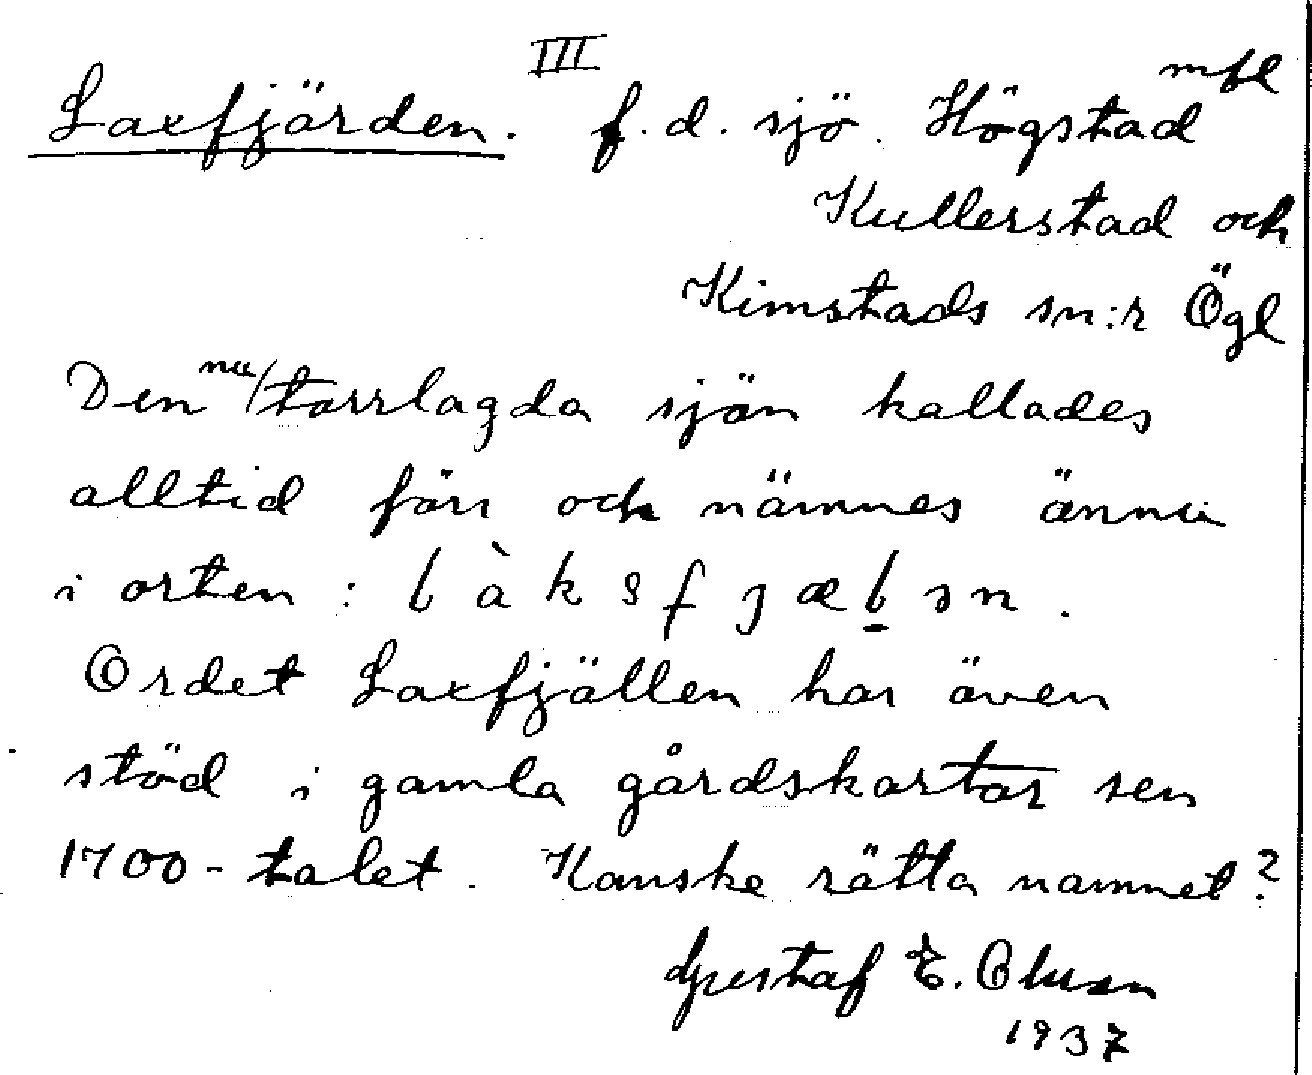 III
Laxfjärden. f. d. sjö. Högstad mfl
Kullerstad och
Kimstads sn:r Ögl
Den nu/torrlagda sjön kallades
alltid förr och nämnes ännu
i orten :
Ordet Laxfjällen har även
stöd i gamla gårdskartor sen
1700-talet. Kanske rätta namnet?
Gustaf E.
1937